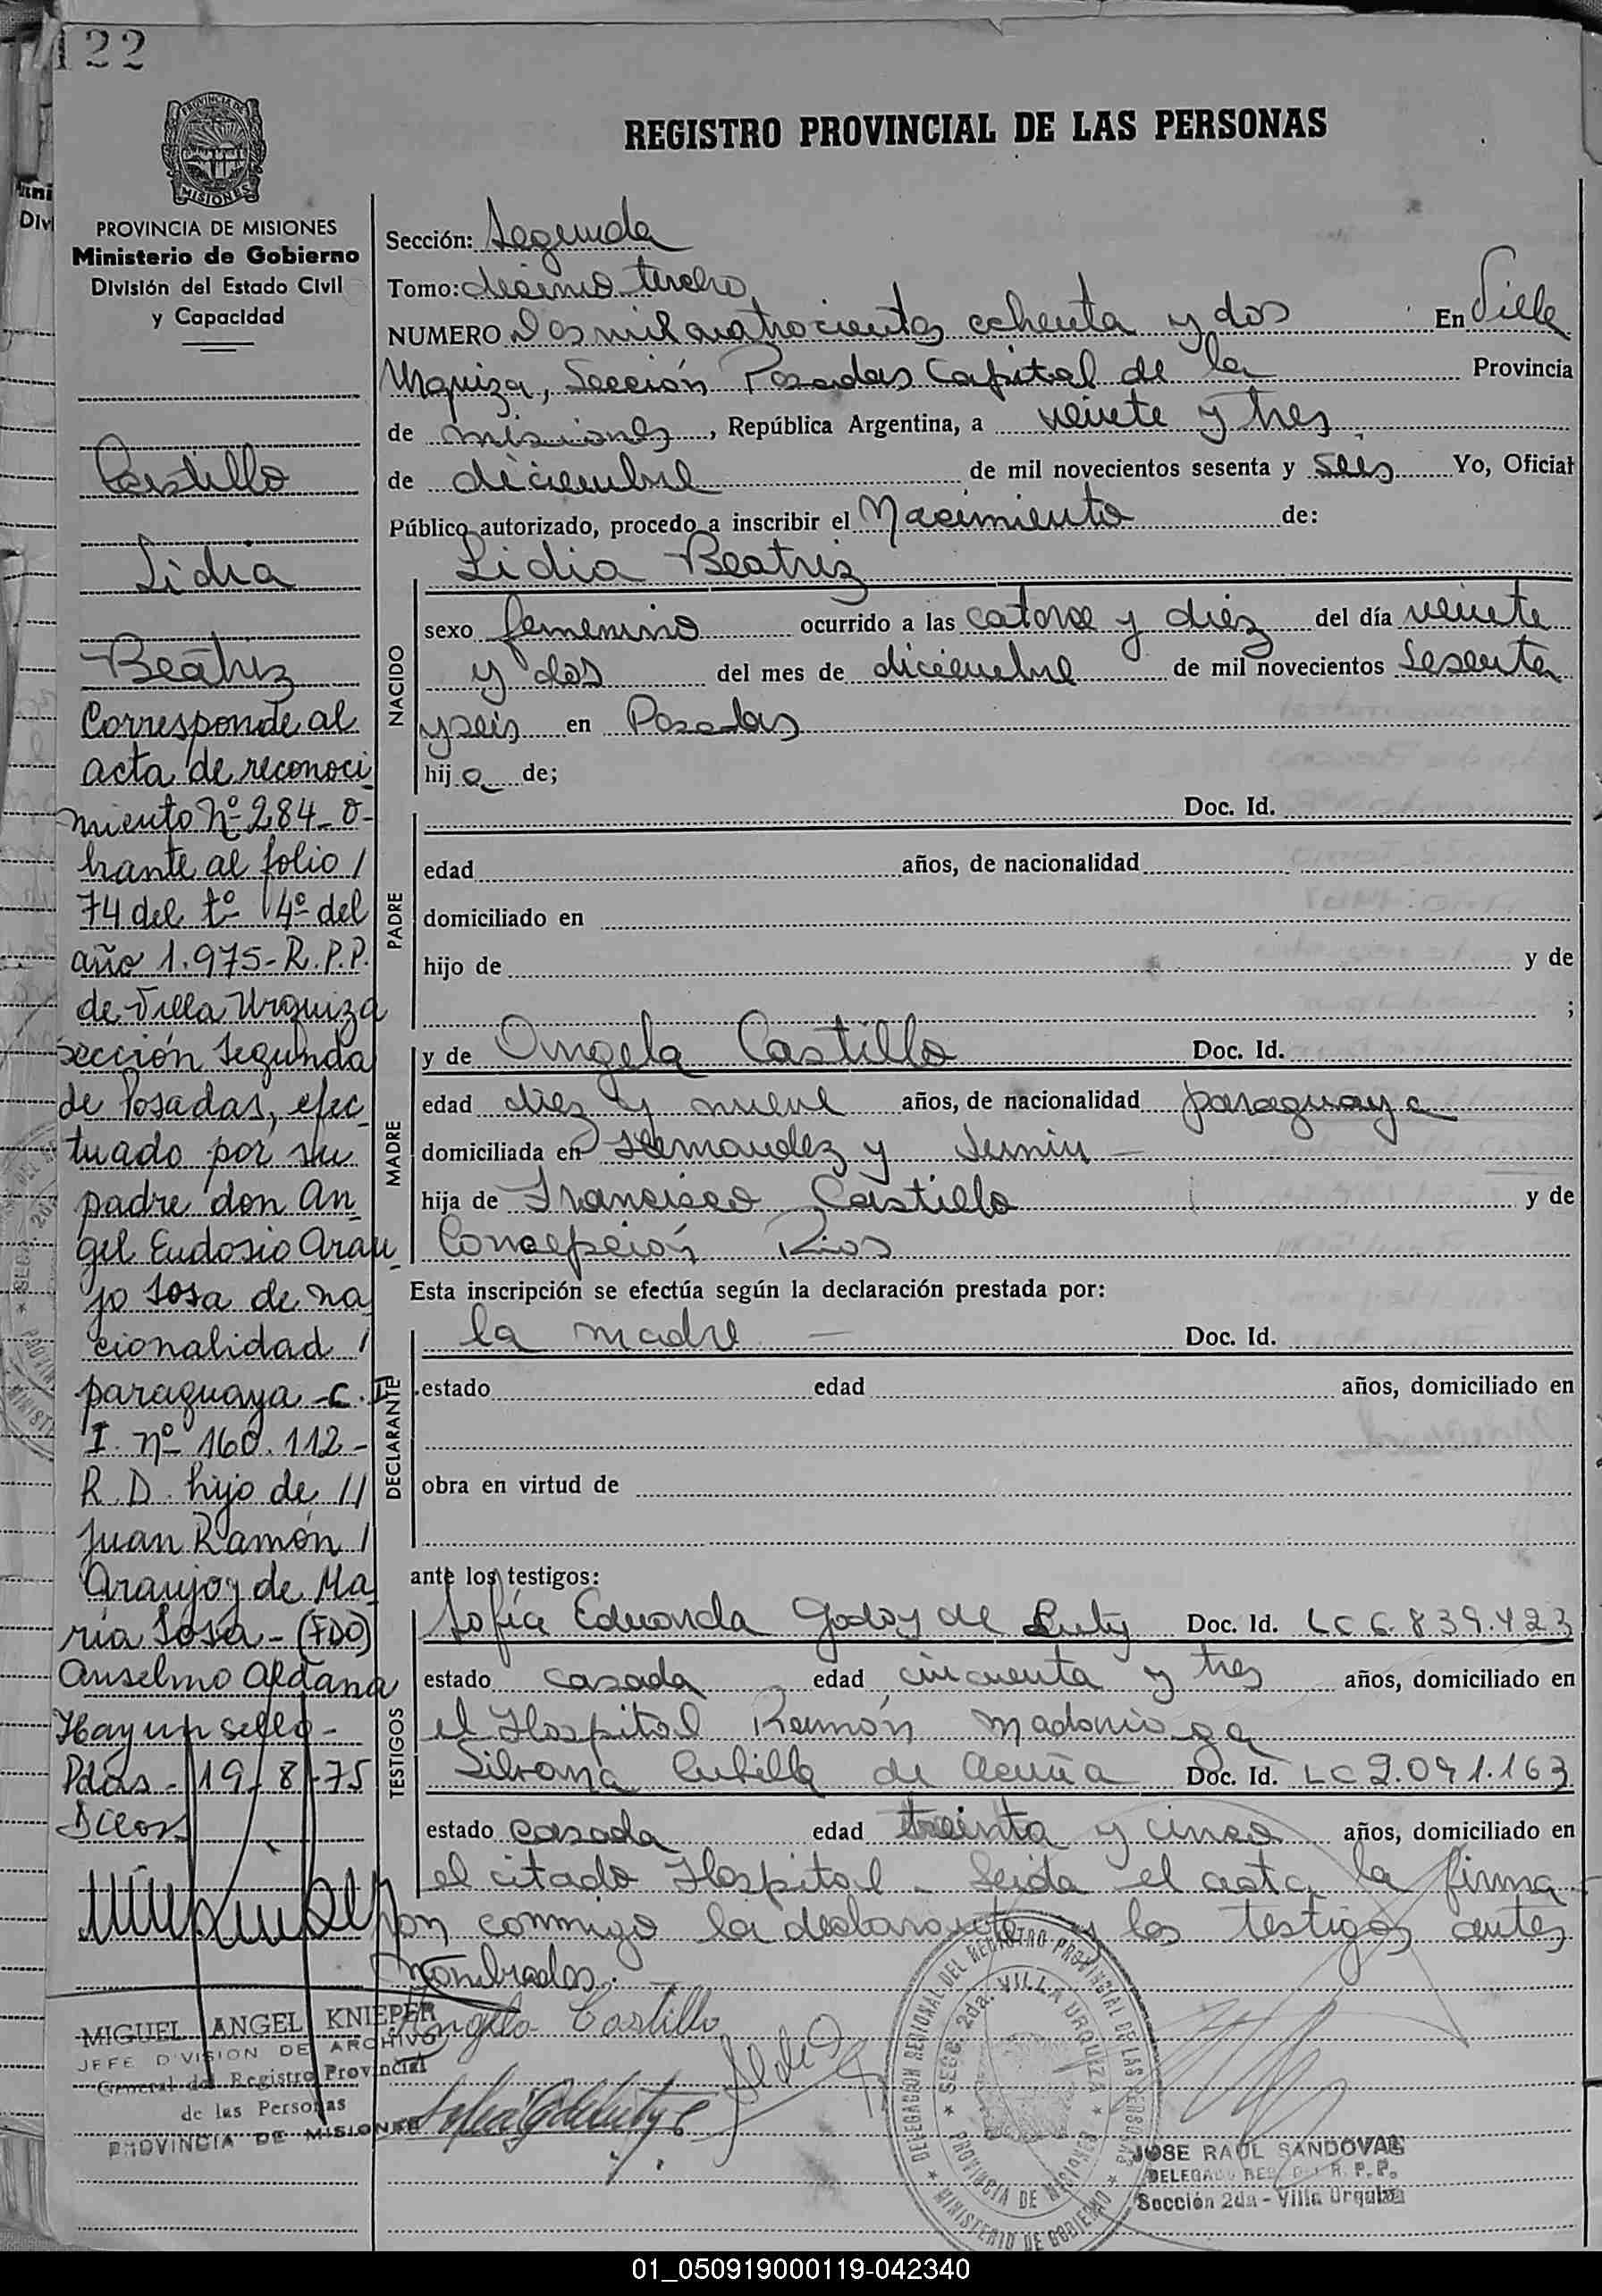 122
REGISTRO PROVINCIAL DE LAS PERSONAS
PROVINCIA DE MISIONES
PROVINCIA DE MISIONES
Ministerio de Gobierno
División del Estado Civil
y Capacidad
Castillo
Lidia
Beatriz
Corresponde al
acta de reconoci
miento Nº 284-o-
brante al folio /
74 del tº 14º del
año 1.975-R.P.P.
de Villa Urquiza
sección segunda
de Posadas, efec
tuado por su
padre don An
gel Eudosio Arau
jo Sosa de na
cionalidad /
paraguaya -C.I
I. nº 160.112-
R.D. hijo de //
Juan Ramón /
Araujo y de Ma
ría Sosa - (FDO)
Anselmo Aldana
Hay un sello-
Pdas-19-8-75
MIGUEL ANGEL KNIEPER
JEFE DIVISION DE ARCHIVO
General del Registro Provincial
de las Personas
PROVINCIA DE MISIONES
Sección: Segunda
Tomo: décimo tercero
NUMERO Dos mil cuatrocientos ochenta y dos En Villa
Urquiza, Sección Posadas Capital de la Provincia
de misiones, República Argentina, a veinte y tres
de diciembre de mil novecientos sesenta y seis Yo, Oficial
Público autorizado, procedo a inscribir el Nacimiento de:
Lidia Beatriz
NACIDO
sexo femenino ocurrido a las catorce y diez del día veinte
y dos del mes de diciembre de mil novecientos sesenta
y seis en Posadas
hij a de;
PADRE
Doc. Id.
edad años, de nacionalidad
domiciliado en
hijo de y de
;
MADRE
y de Angela Castillo Doc. Id.
edad diez y nueve años, de nacionalidad paraguaya
domiciliada en Hernandez y Junin
hija de Francisco Castillo y de
Concepción Rios
Esta inscripción se efectúa según la declaración prestada por:
DECLARANTE
la madre — Doc. Id.
estado edad años, domiciliado en
obra en virtud de
ante los testigos:
TESTIGOS
Sofía Eduarda Godoy de Doc. Id. LC 6.839.423
estado casada edad cincuenta y tres años, domiciliado en
el Hospital Ramón Madariaga
Silvana Cubilla de Acuña Doc. Id. LC 2.041.163
estado casada edad treinta y cinco años, domiciliado en
el citado Hospital - Leida el acta la firma
ron conmigo la declarante y los testigos antes
nombrados.
Angela Castillo
DELEGACION REGIONAL DEL REGISTRO PROVINCIAL DE LAS PERSONAS
SECC. 2da. VILLA URQUIZA
PROVINCIA DE MISIONES
MINISTERIO DE GOBIERNO
JOSE RAUL SANDOVAL
DELEGADO REG. DEL R. P. P.
Sección 2da - Villa Urquiza
01_050919000119-042340